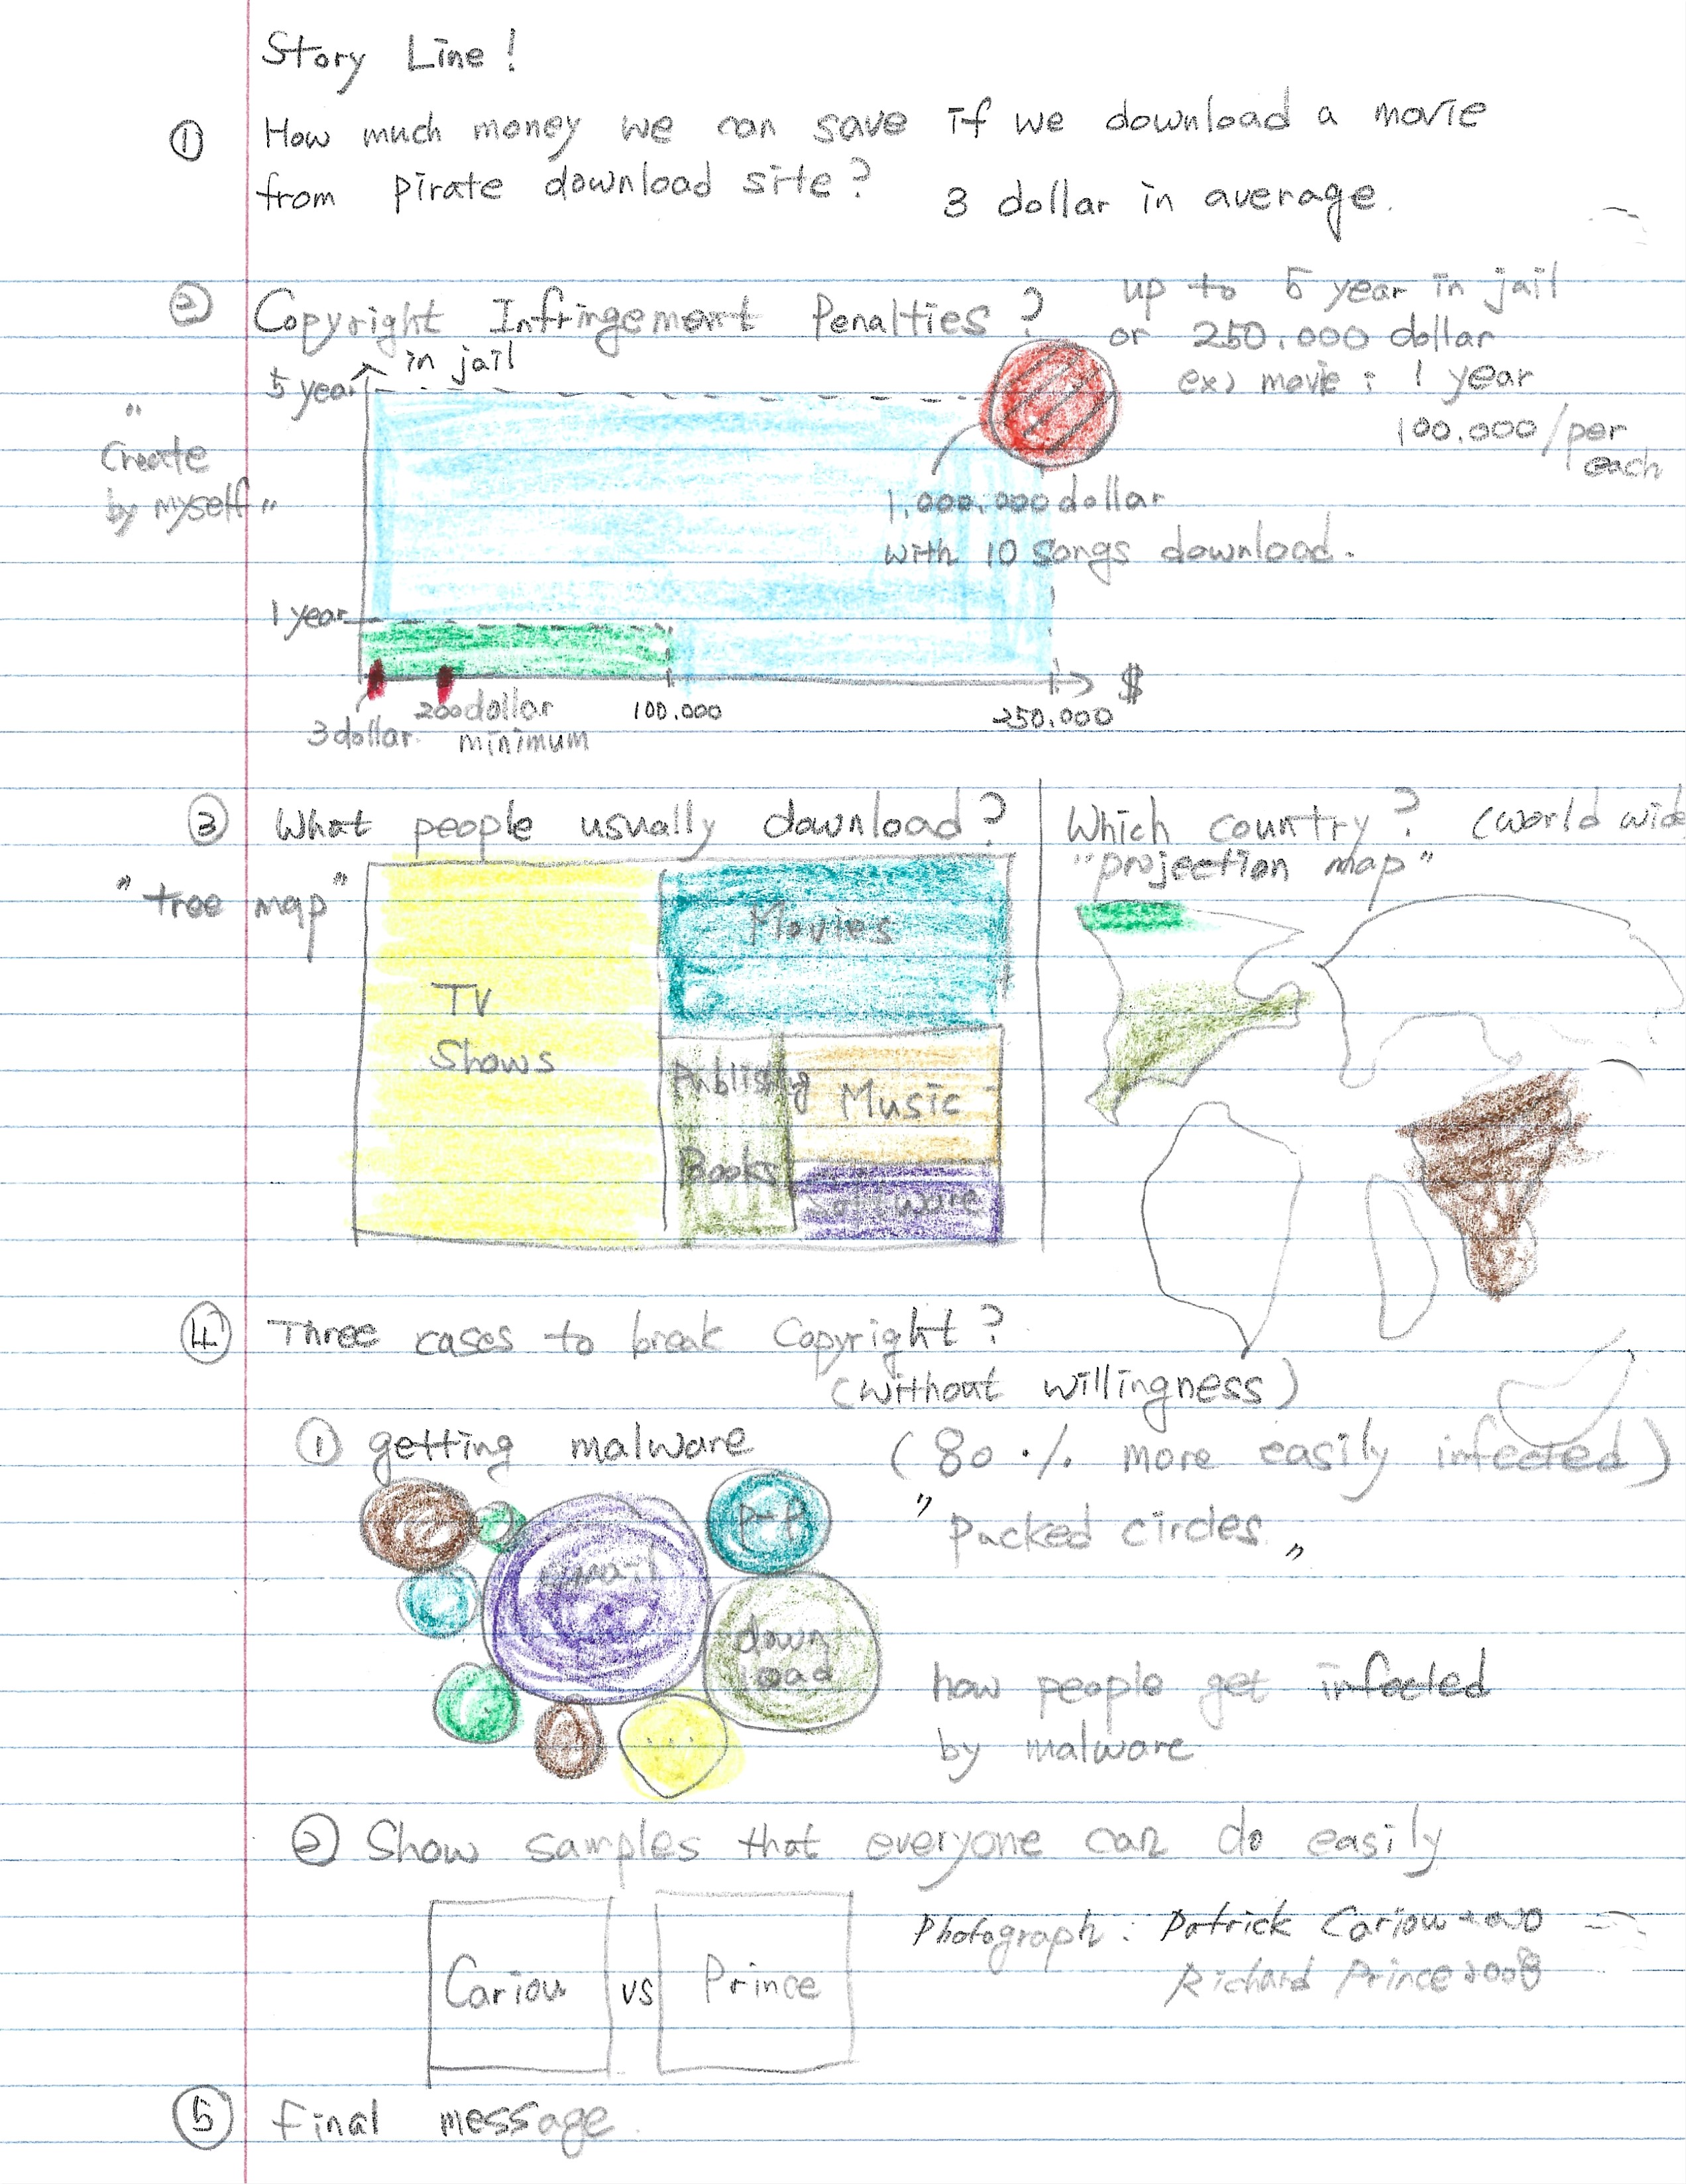 Story Line!
① How much money we can save if we download a movie
from pirate download site? 3 dollar in average.
② Copyright Infringement Penalties?
up to 5 year in jail
or 250.000 dollar
ex) movie : 1 year
100.000/per
each
"Create
by myself"
5 year
in jail
1,000.000 dollar
with 10 songs download.
1 year
3 dollar
200 dollar
minimum
100.000
250.000
$
③ What people usually download?
"tree map"
TV
Shows
Movies
Publishig
Books
Music
Software
Which country? (world wide
"projection map"
④ Three cases to break Copyright?
(without willingness)
① getting malware (80 % more easily infected)
"Packed circles"
email
P-P
down
load
...
how people get infected
by malware
② Show samples that everyone can do easily
Cariou vs Prince
Photograph : Patrick Cariou
Richard Prince 2008
⑤ final message.